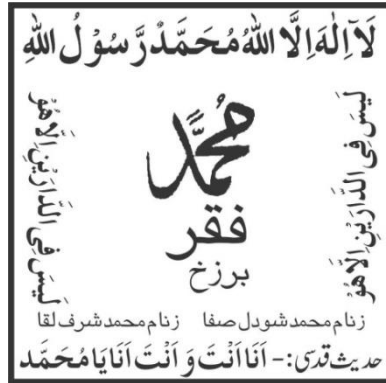 لَآ اِلٰهَ اِلَّا اللّٰهُ مُحَمَّدٌ رَّسُوْلُ اللّٰهِ
لَیْسَ فِی الدَّارَیْنِ اِلَّا هُوْ
مُحَمَّد
فقر
برزخ
لَیْسَ فِی الدَّارَیْنِ اِلَّا هُوْ
زنام محمد شودل صفا زنام محمد شرف لقا
حدیث قدسی:- اَنَا اَنْتَ وَ اَنْتَ اَنَا یَا مُحَمَّد